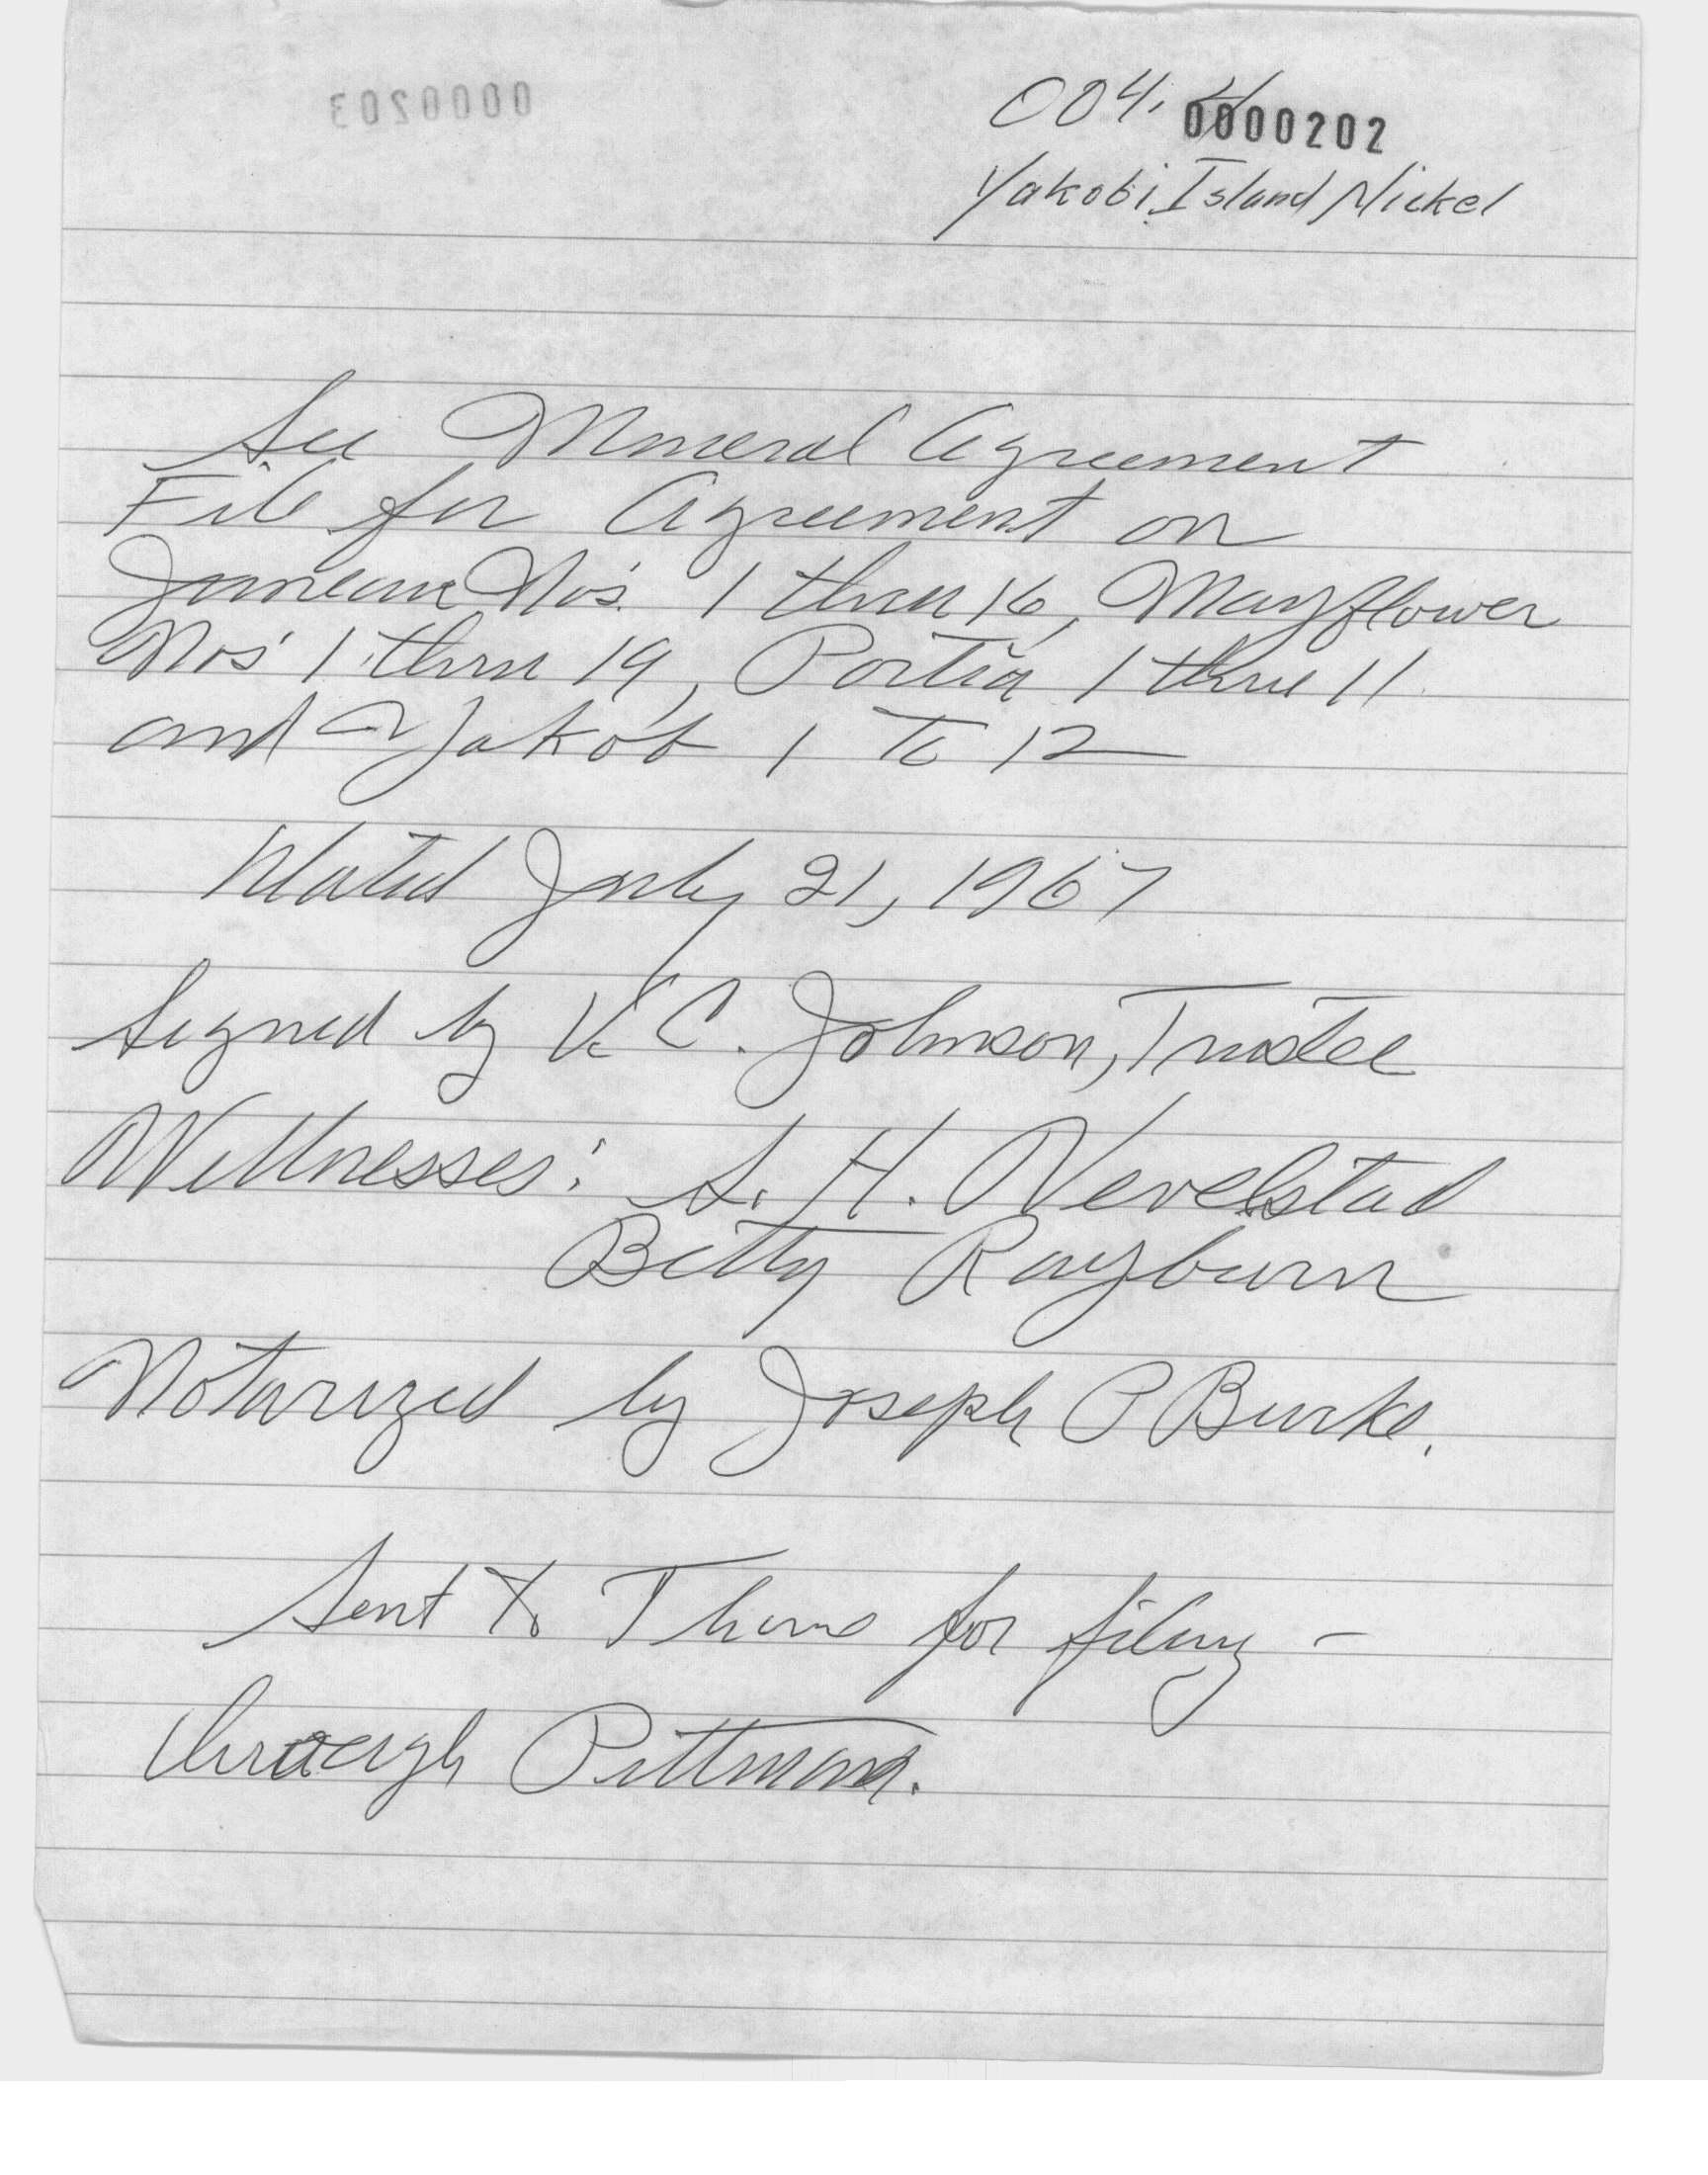 0000203
004.4 0000202
Yakobi Island Nickel
See Mineral Agreement
File for Agreement on
Juneau Nos. 1 thru 16, Mayflower
Nos 1 thru 19, Portia 1 thru 11
and Yakob 1 to 12
Dated July 21, 1967
Signed by V. C. Johnson, Trustee
Wittnesses: S. H. Nevelstad
Betty Rayburn
Notarized by Joseph P Burke.
Sent to for filing –
through Pittman.